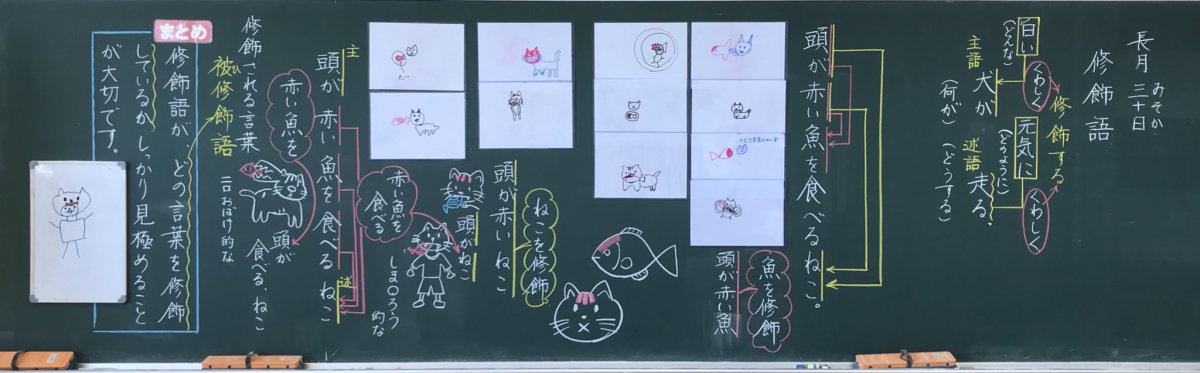 長月 三十日
みそか
修飾語
修飾する
くわしく
くわしく
白い
(どんな)
主語
犬が
(何が)
元気に
(どのように)
述語
走る。
(どうする)
頭が赤い魚を食べるねこ。
魚を修飾
頭が赤い魚
ねこを修飾
頭が赤いねこ
頭がねこ
赤い魚を
食べる
しま〇ろう
的な
主
頭が 赤い 魚を 食べる ねこ
述
赤い魚を
頭が
食べる、ねこ
おばけ的な
修飾される言葉
被修飾語
ひ
まとめ
修飾語が、どの言葉を修飾
しているか、しっかり見極めること
が大切です。